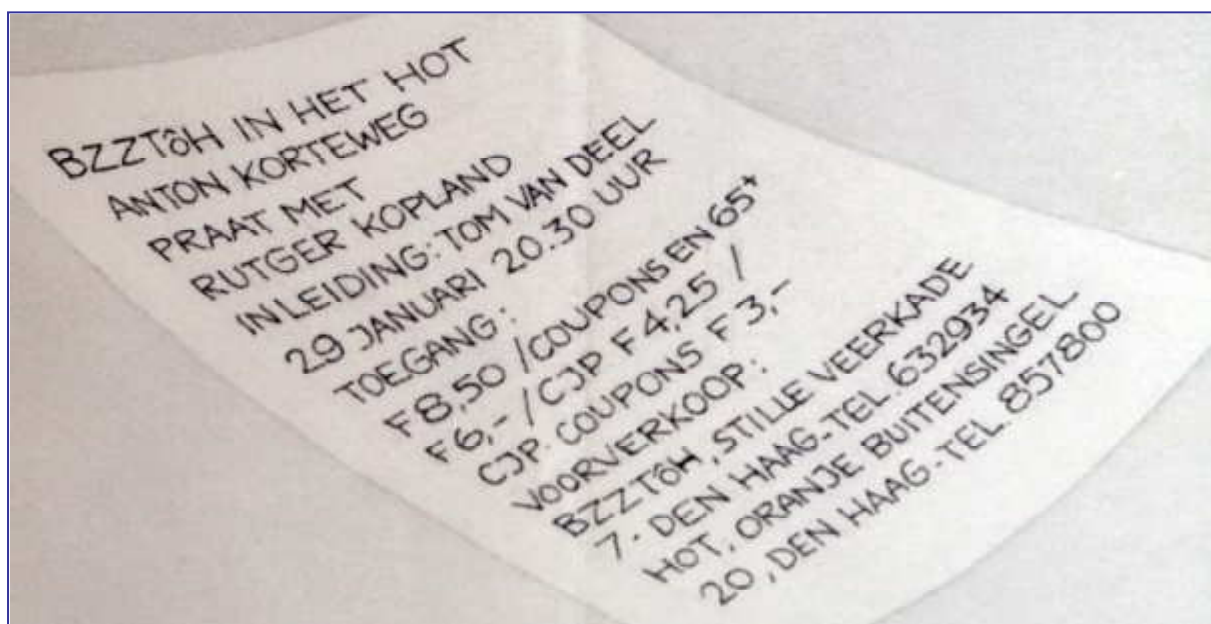 BZZTôH IN HET HOT
ANTON KORTEWEG
PRAAT MET
RUTGER KOPLAND
INLEIDING: TOM VAN DEEL
29 JANUARI 20.30 UUR
TOEGANG:
F 8,50 / COUPONS EN 65+
F 6,- / CJP F 4,25 /
CJP. COUPONS F 3,-
VOORVERKOOP:
BZZTôH, STILLE VEERKADE
7. DEN HAAG-TEL. 632934
HOT, ORANJE BUITENSINGEL
20, DEN HAAG-TEL. 857800